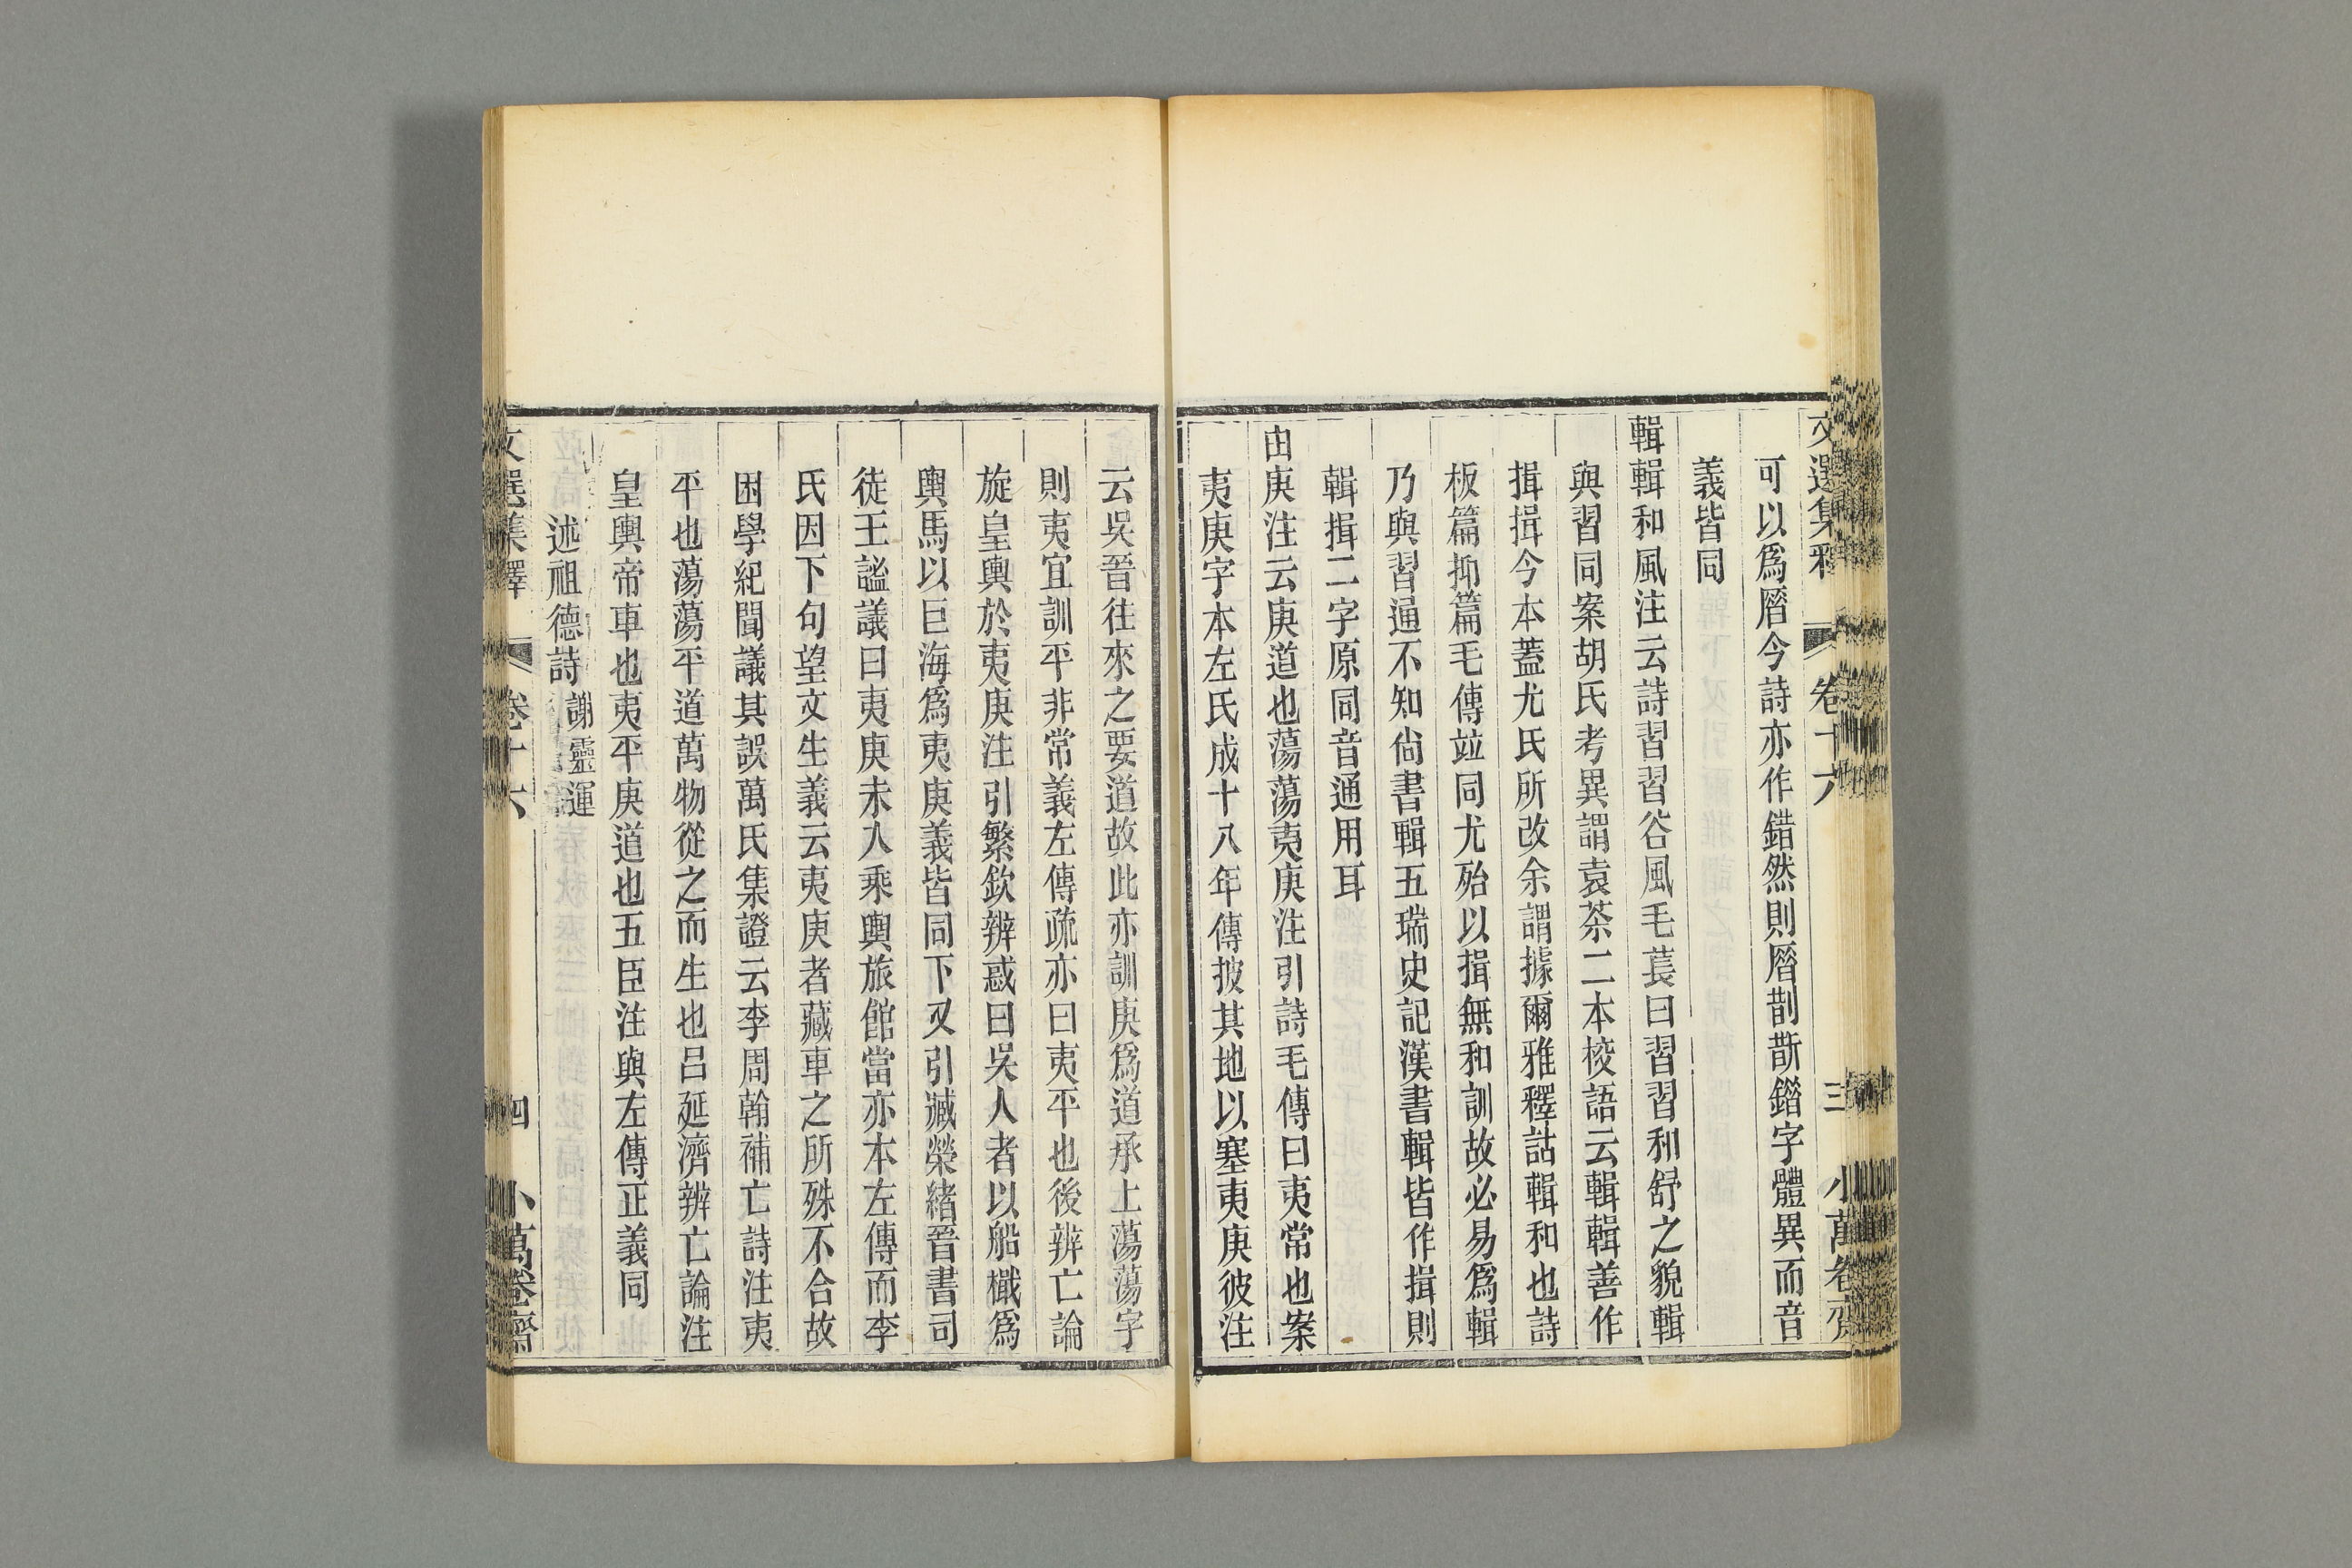 文選集釋 卷十六 三 小萬卷齋
可以爲厝今詩亦作錯然則厝剒斮鐕字體異而音
義皆同
輯輯和風注云詩習習谷風毛萇曰習習和舒之貌輯
與習同案胡氏考異謂袁茶二本校語云輯輯善作
揖揖今本蓋尤氏所改余謂據爾雅釋詁輯和也詩
板篇抑篇毛傳竝同尤殆以揖無和訓故必易爲輯
乃與習通不知尙書輯五瑞史記漢書輯皆作揖則
輯揖二字原同音通用耳
由庚注云庚道也蕩蕩夷庚注引詩毛傳曰夷常也案
夷庚字本左氏成十八年傳披其地以塞夷庚彼注
云吳晉往來之要道故此亦訓庚爲道承上蕩蕩字
則夷宜訓平非常義左傳疏亦曰夷平也後辨亡論
旋皇輿於夷庚注引繁欽辨惑曰吳人者以船檝爲
輿馬以巨海爲夷庚義皆同下又引臧榮緒晉書司
徒王謐議曰夷庚未入乘輿旅館當亦本左傳而李
氏因下句望文生義云夷庚者藏車之所殊不合故
困學紀聞議其誤萬氏集證云李周翰補亡詩注夷
平也蕩蕩平道萬物從之而生也呂延濟辨亡論注
皇輿帝車也夷平庚道也五臣注與左傳正義同
述祖德詩 謝靈運
文選集釋 卷十六 四 小萬卷齋